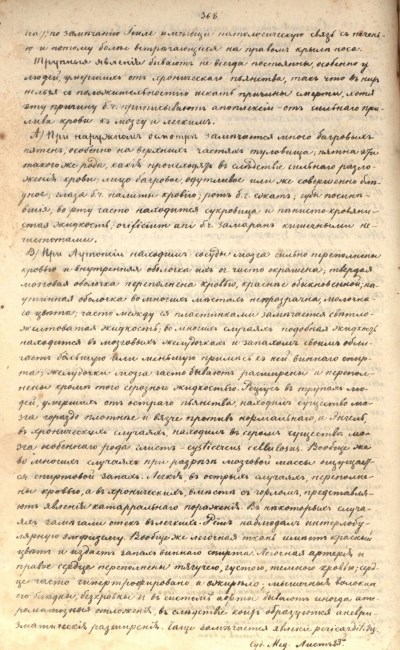 368.
по замѣчанію Гейле имѣющій патологическую связь съ печень-
ю и потому болѣе встрѣчающійся на правомъ крылѣ носа.
Трупныя явленія бываютъ не всегда постоянны, особенно у
людей, умершихъ отъ хроническаго пьянства, такъ что въ нихъ
нельзя съ положительностію искать причины смерти, хотя
эту причину б. ч. приписываютъ апоплексіи отъ сильнаго при-
лива крови къ мозгу и легкимъ.
А) При наружномъ осмотрѣ замѣчается много багровыхъ
пятенъ, особенно на верхнихъ частяхъ туловища; пятна эти
такого же рода, какія происходятъ въ слѣдствіе сильнаго разло-
женія крови; лицо багровое, одутливое или же совершенно блѣд-
ное; глаза б. ч. налиты кровію; ротъ б. ч. сжатъ; губы посинѣ-
вшія, во рту часто находится сукровица и пѣнисто-кровяни-
стая жидкость; orificium ani б. ч. замаранъ кишечными не-
чистотами.
В) При Аутопсіи находимъ: сосуды мозга сильно переполнены
кровью и внутренняя оболочка ихъ ч. чисто окрашена; твердая
мозговая оболочка переполнена кровію, краснѣе обыкновенной, па-
утинная оболочка во многихъ мѣстахъ непрозрачна, молочна-
го цвѣта; часто между ея пластинками замѣчается свѣтло-
желтоватая жидкость; во многихъ случаяхъ подобная жидкость
находится въ мозговыхъ желудочкахъ и запахомъ своимъ обли-
чаетъ большую или меньшую примѣсь къ ней виннаго спир-
та; желудочки мозга часто бываютъ расширены и перепол-
нены кромѣ того серозною жидкостью. въ трупахъ лю-
дей, умершихъ отъ остраго пьянства, находилъ существо мо-
зга гораздо плотнѣе и вязче противъ нормальнаго, а Энгель,
въ хроническихъ случаяхъ, находилъ въ сѣромъ существѣ мо-
зга особеннаго рода глистъ - cysticercus cellulosus. Вообще же
во многихъ случаяхъ при разрѣзѣ мозговой массы ощущает-
ся спиртовой запахъ. Легкія, въ острыхъ случаяхъ, переполне-
ны кровью, а въ хроническихъ, вмѣстѣ съ горломъ, представля-
ютъ явленія катарральнаго пораженія. Въ нѣкоторыхъ случа-
яхъ замѣчали отекъ въ легкихъ. наблюдалъ интерлобу-
лярную эмфизему. Вообще же легочная ткань имѣетъ красный
цвѣтъ и издаетъ запахъ виннаго спирта. Легочная артерія и
правое сердце переполнены тягучею, густою, темною кровью; серд-
це часто гипертрофировано и ожирѣло; мышечныя волокна
его блѣдны, безкровны и въ системѣ аорты бываютъ иногда ате-
роматозныя отложенія, въ слѣдствіе коихъ образуются аневри-
зматическія расширенія. Чаще замѣчается явленій pericarditidis,
Суд. Мед. Листъ